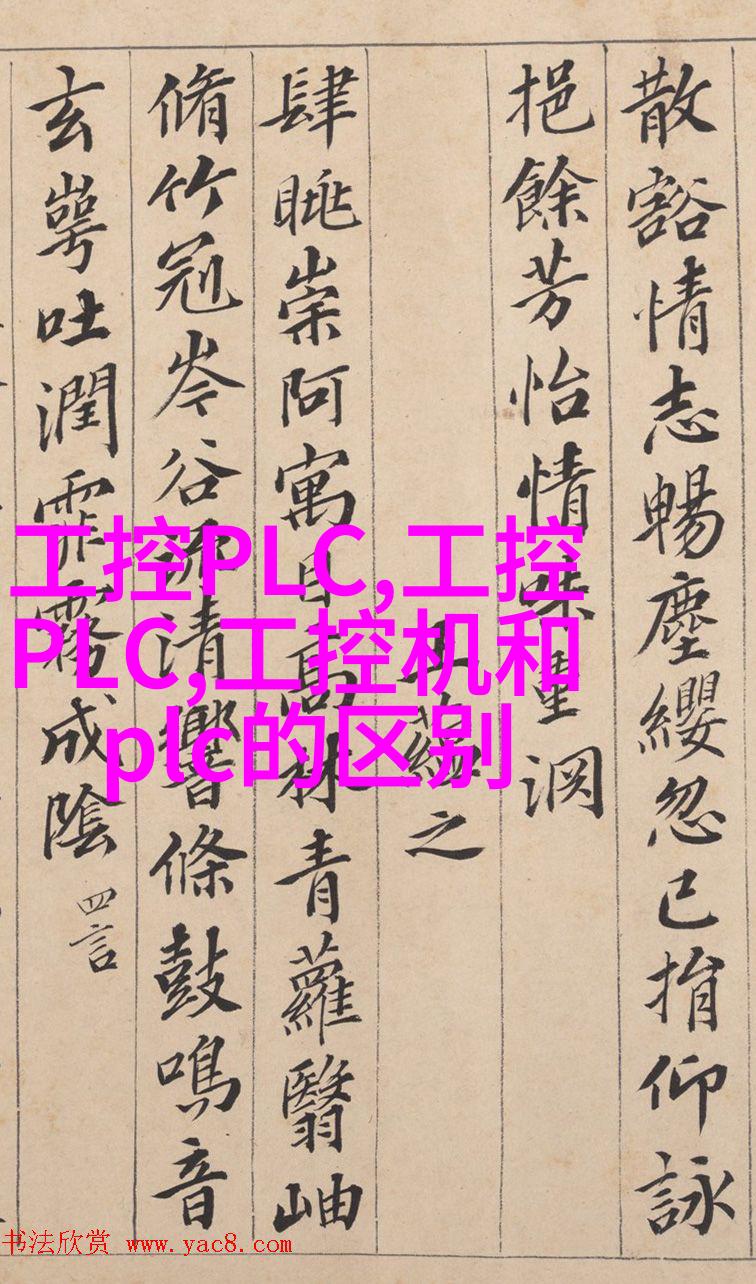 散豁情志暢塵纓忽已捐仰詠
挹餘芳怡情味重淵
王蘊之
肆眺崇阿寓目高林青蘿翳岫
脩竹冠岑谷流清響條鼓鳴音
玄崿吐潤霏霧成陰
四言
工控PLC,工控
PLC,工控机和
plc的区别
书法欣赏 www.yac8.com